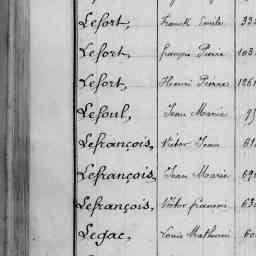 Lefort, Franck Emile 33
Lefort, françois Pierre 103
Lefort, Henri Pierre 126
Lefoul, Jean Marie 9
Lefrançois, Victor Jean 61
Lefrançois, Jean Marie 69
Lefrançois, Victor francois 63
Legac, Louis Mathurin 60